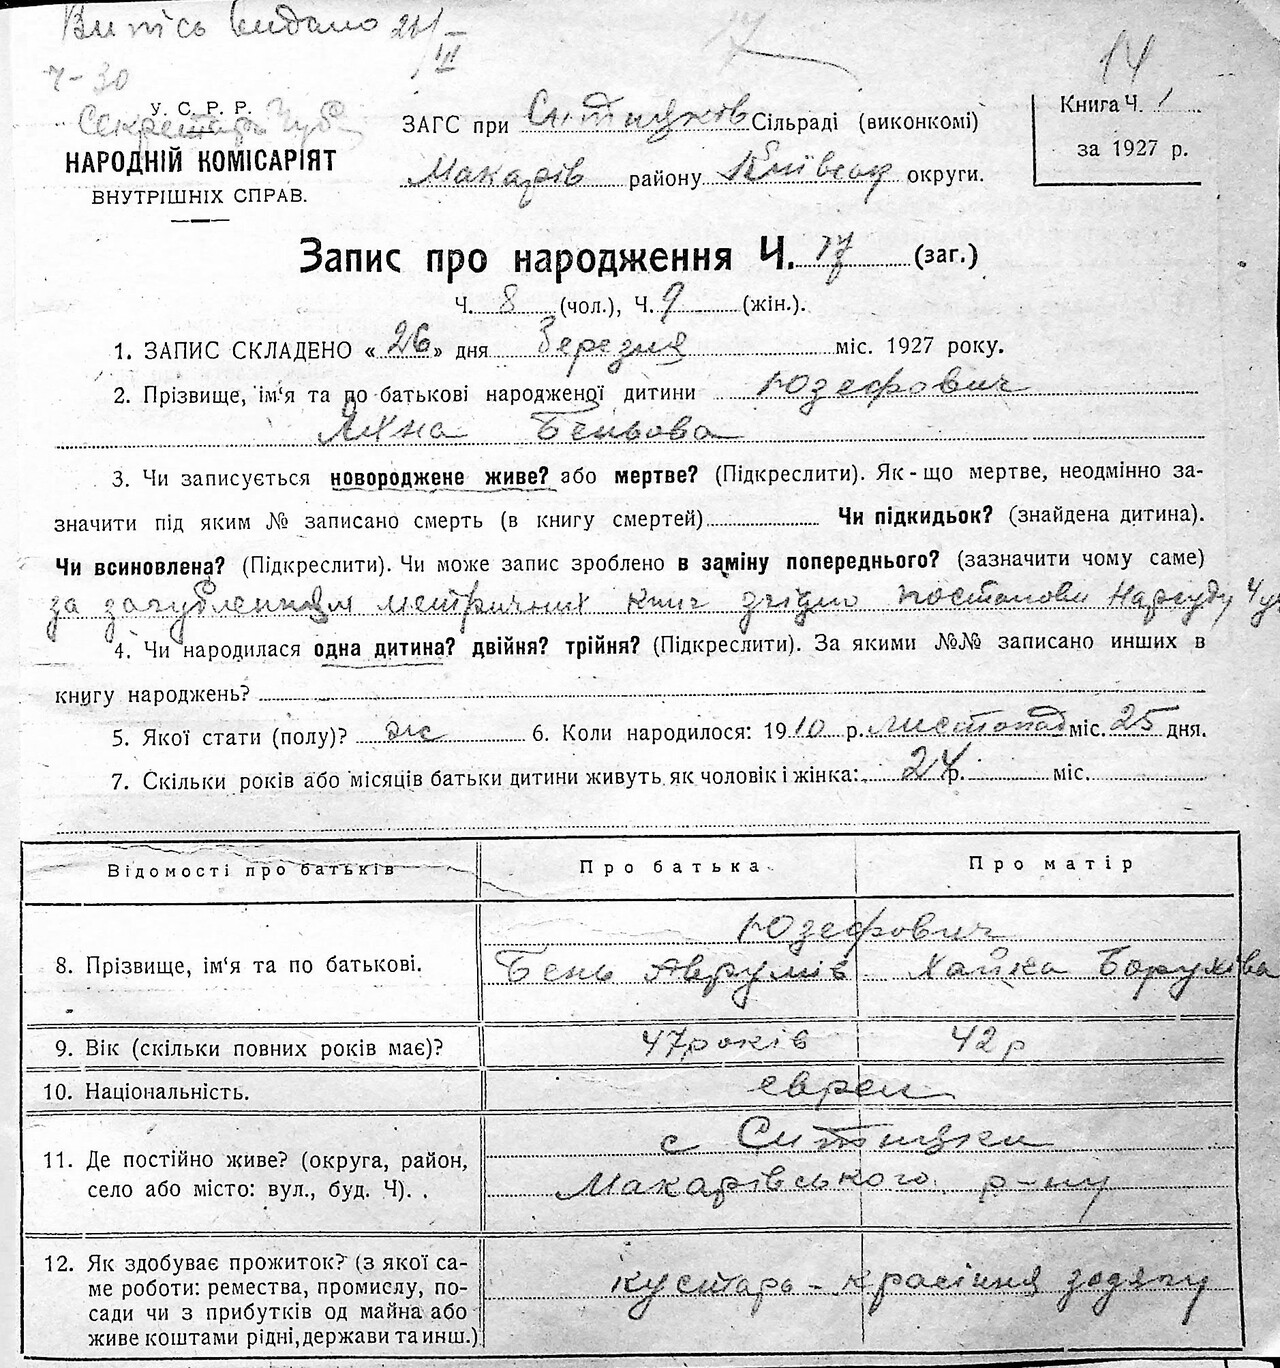 Випись видано 24/III
Ч-30
Секретарь
17
14
У. С. Р. Р.
НАРОДНІЙ КОМІСАРІЯТ
ВНУТРІШНІХ СПРАВ.
ЗАГС при Ситняків Сільраді (виконкомі)
Макарів району Київськ округи.
Книга Ч. 1
за 1927 р.
Запис про народження Ч. 17 (заг.)
Ч. 8 (чол.), Ч. 9 (жін.).
1. ЗАПИС СКЛАДЕНО «26» дня Березня міс. 1927 року.
2. Прізвище, ім‘я та по батькові народженої дитини Юзефович
Беньова
3. Чи записується новороджене живе? або мертве? (Підкреслити). Як-що мертве, неодмінно за-
значити під яким № записано смерть (в книгу смертей) Чи підкидьок? (знайдена дитина).
Чи всиновлена? (Підкреслити). Чи може запис зроблено в заміну попереднього? (зазначити чому саме)
за загубленням метричних книг згідно постанови Нарсуду
4. Чи народилася одна дитина? двійня? трійня? (Підкреслити). За якими №№ записано инших в
книгу народжень?
5. Якої стати (полу)? ж 6. Коли народилося: 1910 р. листопад міс. 25 дня.
7. Скільки років або місяців батьки дитини живуть як чоловік і жінка: 24 р. міс.
Відомості про батьків Про батька Про матір
Юзефович
8. Прізвище, ім‘я та по батькові. Бень Аврумів Хайка Борухівна
9. Вік (скільки повних років має)? 47 років 42 р
10. Національність. євреи
11. Де постійно живе? (округа, район, с Ситняки
село або місто: вул., буд. Ч). . Макарівського р-ну
12. Як здобуває прожиток? (з якої са-
ме роботи: ремества, промислу, по- кустарь - красіння зодягу
сади чи з прибутків од майна або
живе коштами рідні, держави та инш.)